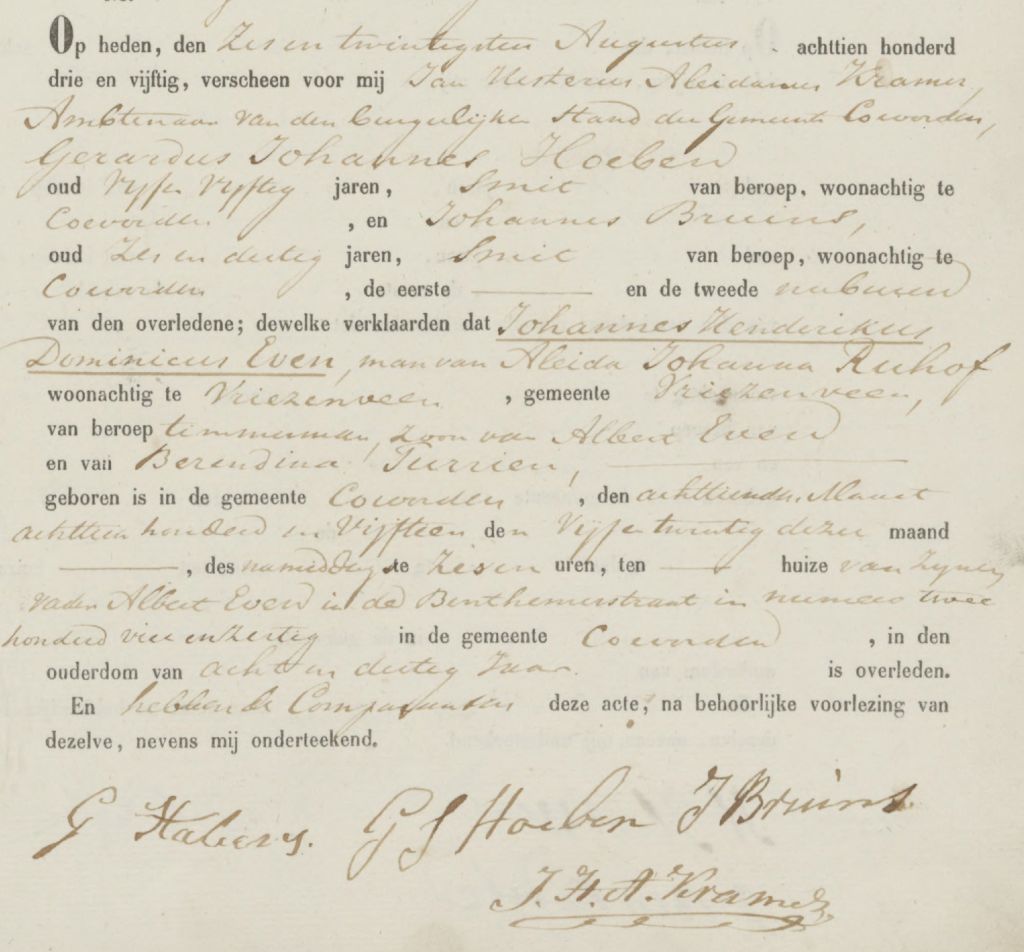 Op heden, den Zes en twintigsten Augustus achttien honderd
drie en vijftig, verscheen voor mij Jan Hesterus Aleidanus Kramer,
Ambtenaar van den burgerlijken Stand der Gemeente Coevorden,
Gerardus Johannes Hoeben
oud Vyf en Vyftig jaren, Smit van beroep, woonachtig te
Coevorden, en Johannes Bruins,
oud Zes en dertig jaren, Smit van beroep, woonachtig te
Coevorden, de eerste — en de tweede naburen
van den overledene; dewelke verklaarden dat Johannes Henderikus
Dominicus Even, man van Aleida Johanna Ruhof
woonachtig te Vriezenveen, gemeente Vriezenveen,
van beroep timmerman, zoon van Albert Even
en van Berendina Turrien, —
geboren is in de gemeente Coevorden, den achttienden Maart
achttien honderd en Vijftien den Vyf en twintig dezer maand
—, des namiddag te Zesen uren, ten — huize van Zynen
vader Albert Even in de Benthemerstraat in numero twee
honderd vier en zestig in de gemeente Coevorden, in den
ouderdom van acht en dertig Jaar. is overleden.
En hebben de Comparanten deze acte, na behoorlijke voorlezing van
dezelve, nevens mij onderteekend.
G S Hoeben J Bruins
J. H. A. Kramer